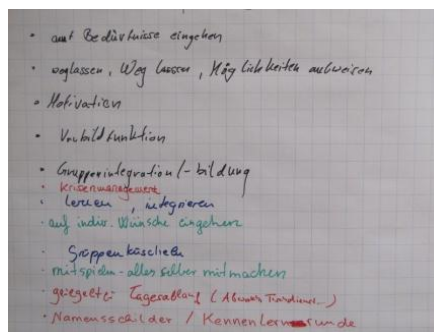 · auf Bedürfnisse eingehen
· weglassen, Weg lassen, Möglichkeiten aufweisen
· Motivation
· Vorbildfunktion
· Gruppenintegration/-bildung
· Krisenmanagement
· lernen, integrieren
· auf indiv. Wünsche eingehen
Gruppen
· mitspielen - alles selber mitmachen
· geregelter Tagesablauf
· Namensschilder / Kennenlernrunde